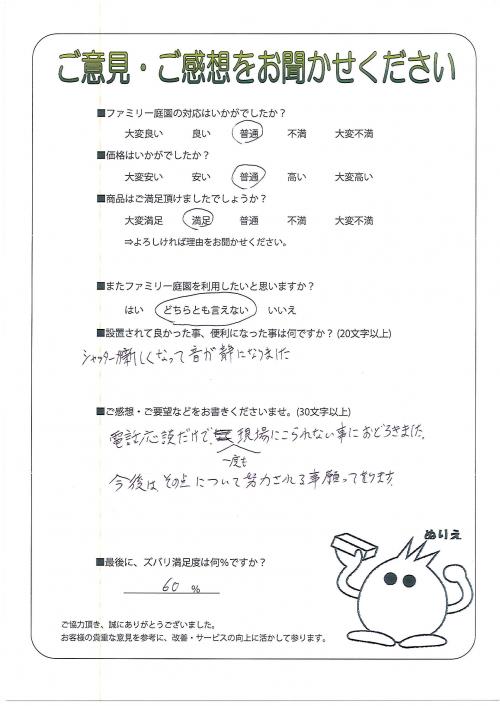 ご意見・ご感想をお聞かせください
■ファミリー庭園の対応はいかがでしたか？
大変良い 良い 普通 不満 大変不満
■価格はいかがでしたか？
大変安い 安い 普通 高い 大変高い
■商品はご満足頂けましたでしょうか？
大変満足 満足 普通 不満 大変不満
⇒よろしければ理由をお聞かせください。
■またファミリー庭園を利用したいと思いますか？
はい どちらとも言えない いいえ
■設置されて良かった事、便利になった事は何ですか？(20文字以上)
シャッターが新しくなって音が静になりました
■ご感想・ご要望などをお書きくださいませ。(30文字以上)
電話応談だけで、現場にこられない事におどろきました。
一度も
今後はその点について努力される事願っております
ぬりえ
■最後に、ズバリ満足度は何％ですか？
60 %
ご協力頂き、誠にありがとうございました。
お客様の貴重な意見を参考に、改善・サービスの向上に活かして参ります。